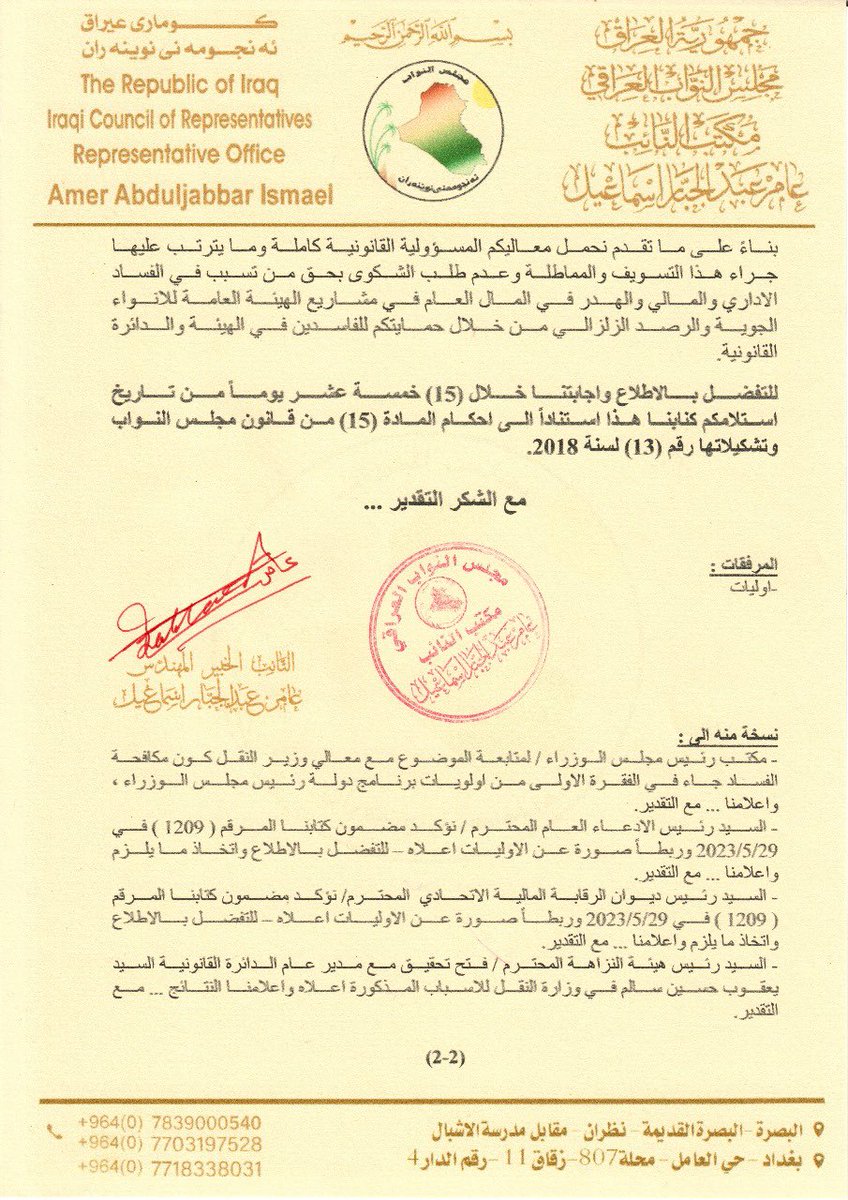 بسم الله الرحمن الرحيم
جمهورية العراق
مجلس النواب العراقي
مكتب النائب
عامر عبد الجبار اسماعيل
مجلس النواب
ئه نجومه نی نوینه ران
The Republic of Iraq
Iraqi Council of Representatives
Representative Office
Amer Abduljabbar Ismael
بناءً على ما تقدم نحمل معاليكم المسؤولية القانونية كاملة وما يترتب عليها
جراء هذا التسويف والمماطلة وعدم طلب الشكوى بحق من تسبب في الفساد
الاداري والمالي والهدر في المال العام في مشاريع الهيئة العامة للانواء
الجوية والرصد الزلزالي من خلال حمايتكم للفاسدين في الهيئة والدائرة
القانونية.
للتفضل بالاطلاع واجابتنا خلال (15) خمسة عشر يوماً من تاريخ
استلامكم كتابنا هذا استناداً الى احكام المادة (15) من قانون مجلس النواب
وتشكيلاتها رقم (13) لسنة 2018.
مع الشكر التقدير ...
المرفقات :
-اوليات
مجلس النواب العراقي
مكتب النائب
عامر عبد الجبار اسماعيل
النائب الخبير المهندس
عامر عبد الجبار اسماعيل
نسخة منه الى :
- مكتب رئيس مجلس الوزراء / لمتابعة الموضوع مع معالي وزير النقل كون مكافحة
الفساد جاء في الفقرة الاولى من اولويات برنامج دولة رئيس مجلس الوزراء ،
واعلامنا ... مع التقدير.
- السيد رئيس الادعاء العام المحترم / نؤكد مضمون كتابنا المرقم ( 1209 ) في
2023/5/29 وربطاً صورة عن الاوليات اعلاه – للتفضل بالاطلاع واتخاذ ما يلزم
واعلامنا ... مع التقدير.
- السيد رئيس ديوان الرقابة المالية الاتحادي المحترم/ نؤكد مضمون كتابنا المرقم
( 1209 ) في 2023/5/29 وربطاً صورة عن الاوليات اعلاه – للتفضل بالاطلاع
واتخاذ ما يلزم واعلامنا ... مع التقدير.
- السيد رئيس هيئة النزاهة المحترم / فتح تحقيق مع مدير عام الدائرة القانونية السيد
يعقوب حسين سالم في وزارة النقل للاسباب المذكورة اعلاه واعلامنا النتائج ... مع
التقدير.
(2-2)
البصرة - البصرة القديمة - نظران - مقابل مدرسة الاشبال
بغداد - حي العامل - محلة 807 - زقاق 11 - رقم الدار 4
+964(0) 7839000540
+964(0) 7703197528
+964(0) 7718338031